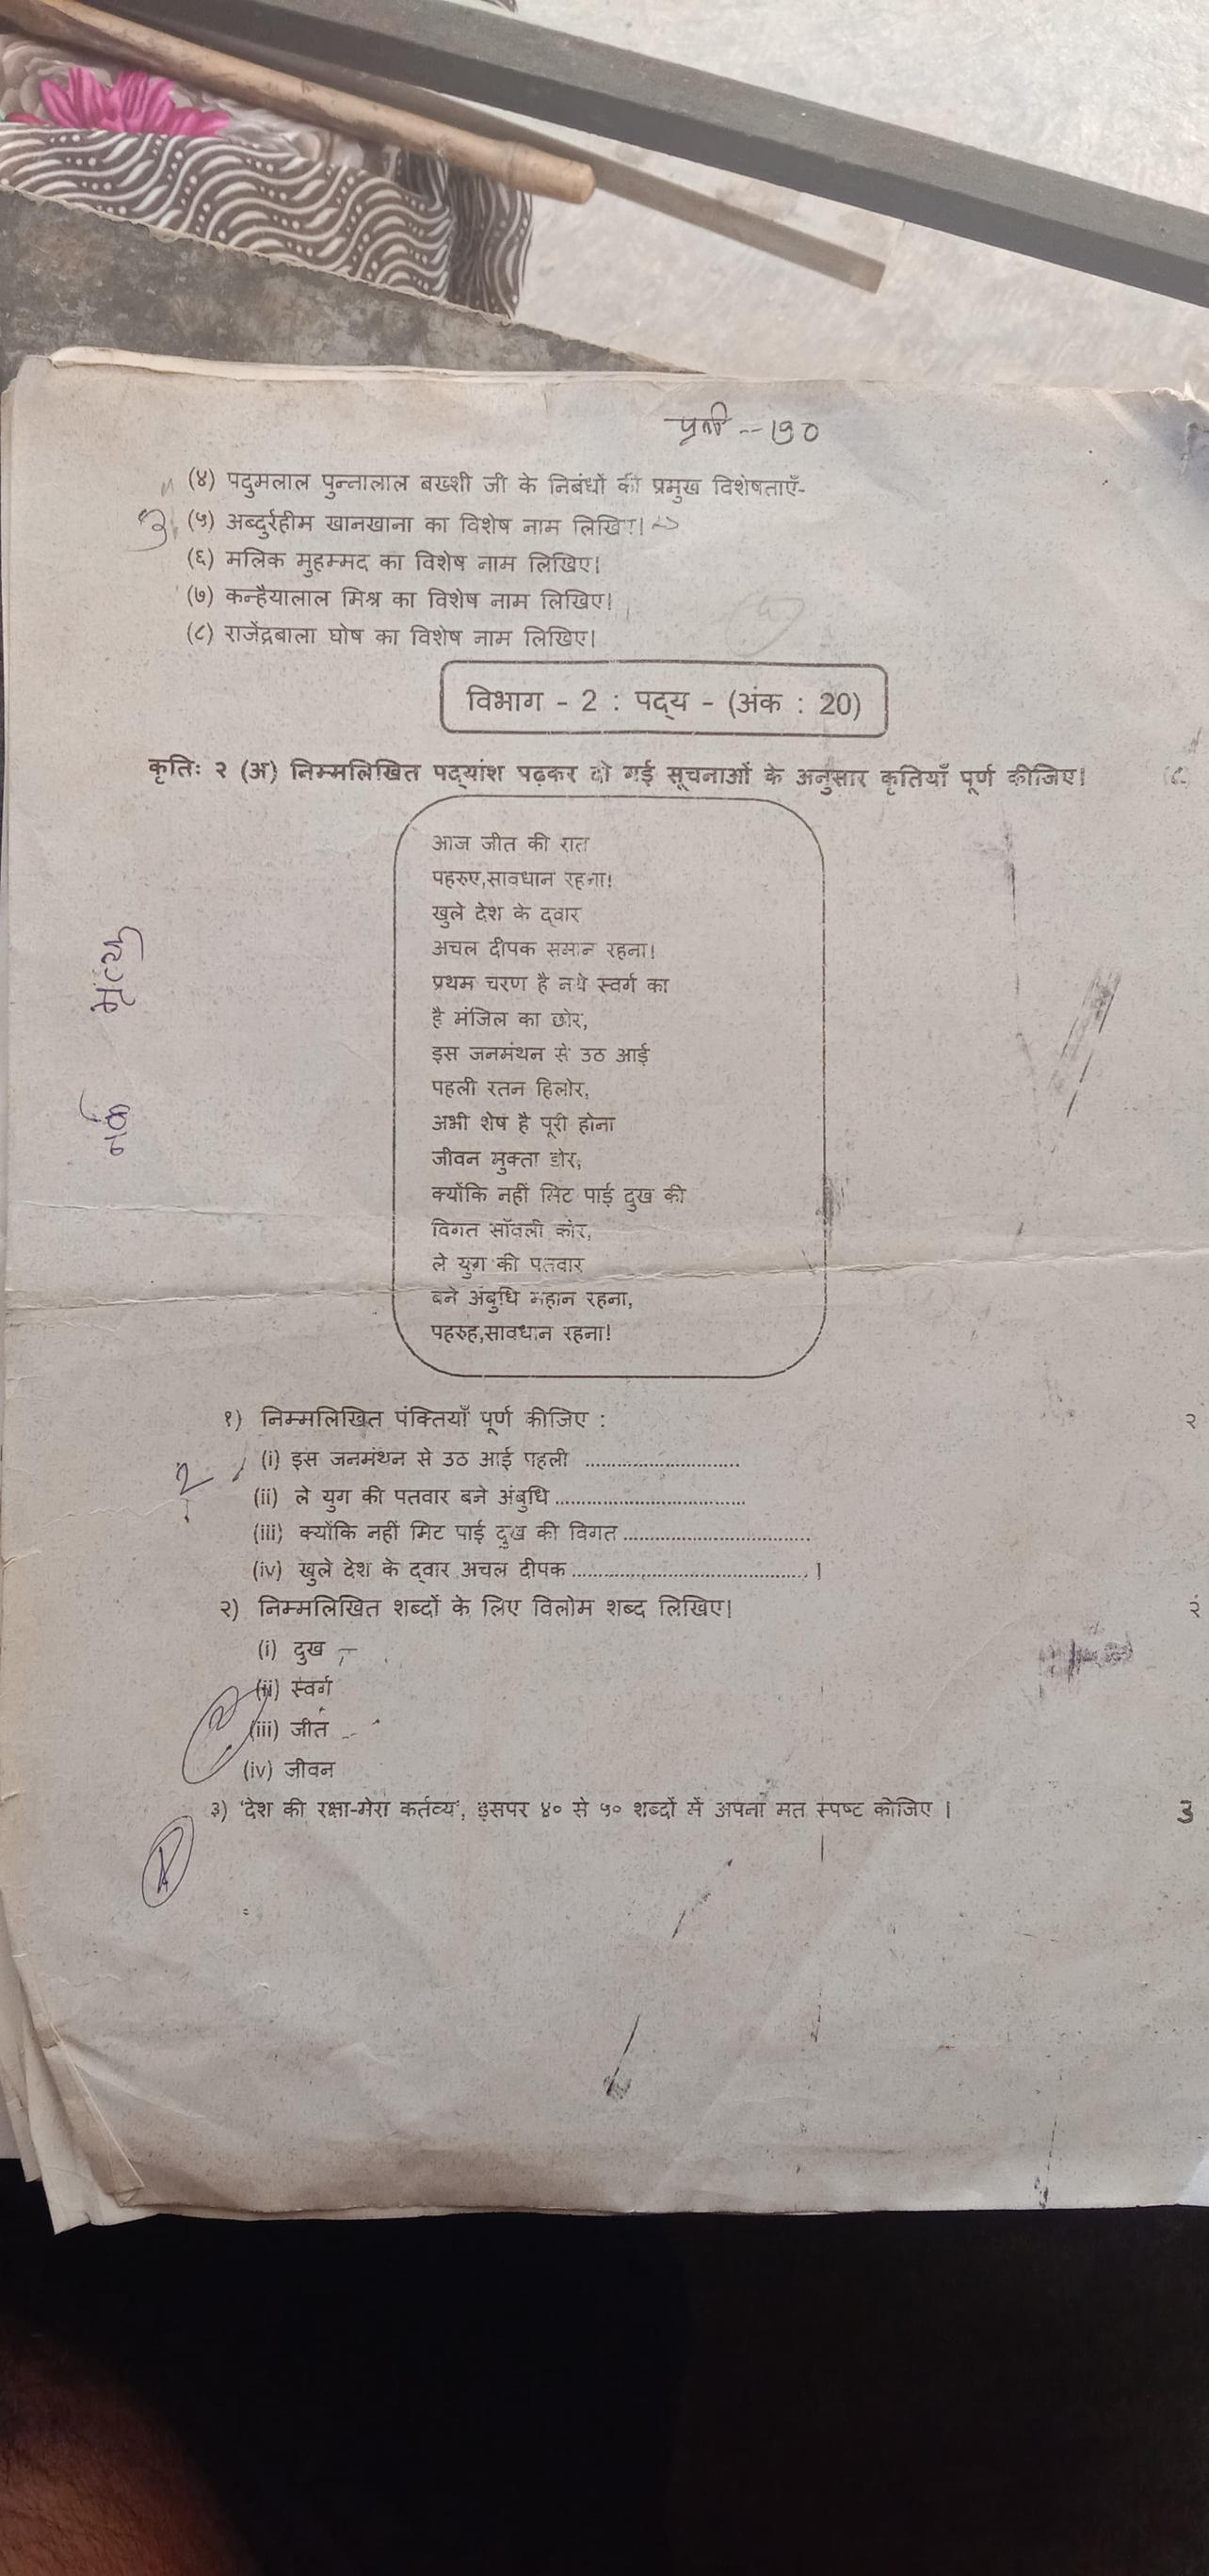 (४) पदुमलाल पुन्नालाल बख्शी जी के निबंधों की प्रमुख विशेषताएँ-
3 (५) अब्दुर्रहीम खानखाना का विशेष नाम लिखिए।
(६) मलिक मुहम्मद का विशेष नाम लिखिए।
(७) कन्हैयालाल मिश्र का विशेष नाम लिखिए।
(८) राजेंद्रबाला घोष का विशेष नाम लिखिए।
विभाग - 2 : पद्य - (अंक : 20)
कृतिः २ (अ) निम्मलिखित पद्यांश पढ़कर दी गई सूचनाओं के अनुसार कृतियाँ पूर्ण कीजिए।
आज जीत की रात
पहरुए,सावधान रहना!
खुले देश के द्वार
अचल दीपक समान रहना!
प्रथम चरण है नये स्वर्ग का
है मंजिल का छोर,
इस जनमंथन से उठ आई
पहली रतन हिलोर,
अभी शेष है पूरी होना
जीवन मुक्ता डोर,
क्योंकि नहीं मिट पाई दुख की
विगत साँवली कोर,
ले युग की पतवार
बने अंबुधि महान रहना,
पहरुह,सावधान रहना!
मृत्यु
नर्क
१) निम्मलिखित पंक्तियाँ पूर्ण कीजिए : २
(i) इस जनमंथन से उठ आई पहली ..............................
2 (ii) ले युग की पतवार बने अंबुधि ....................................
(iii) क्योंकि नहीं मिट पाई दुख की विगत ....................................
(iv) खुले देश के द्वार अचल दीपक ............................................. ।
२) निम्मलिखित शब्दों के लिए विलोम शब्द लिखिए। २
(i) दुख
(ii) स्वर्ग
2 (iii) जीत
(iv) जीवन
३) 'देश की रक्षा-मेरा कर्तव्य', इसपर ४० से ५० शब्दों में अपना मत स्पष्ट कीजिए । 3